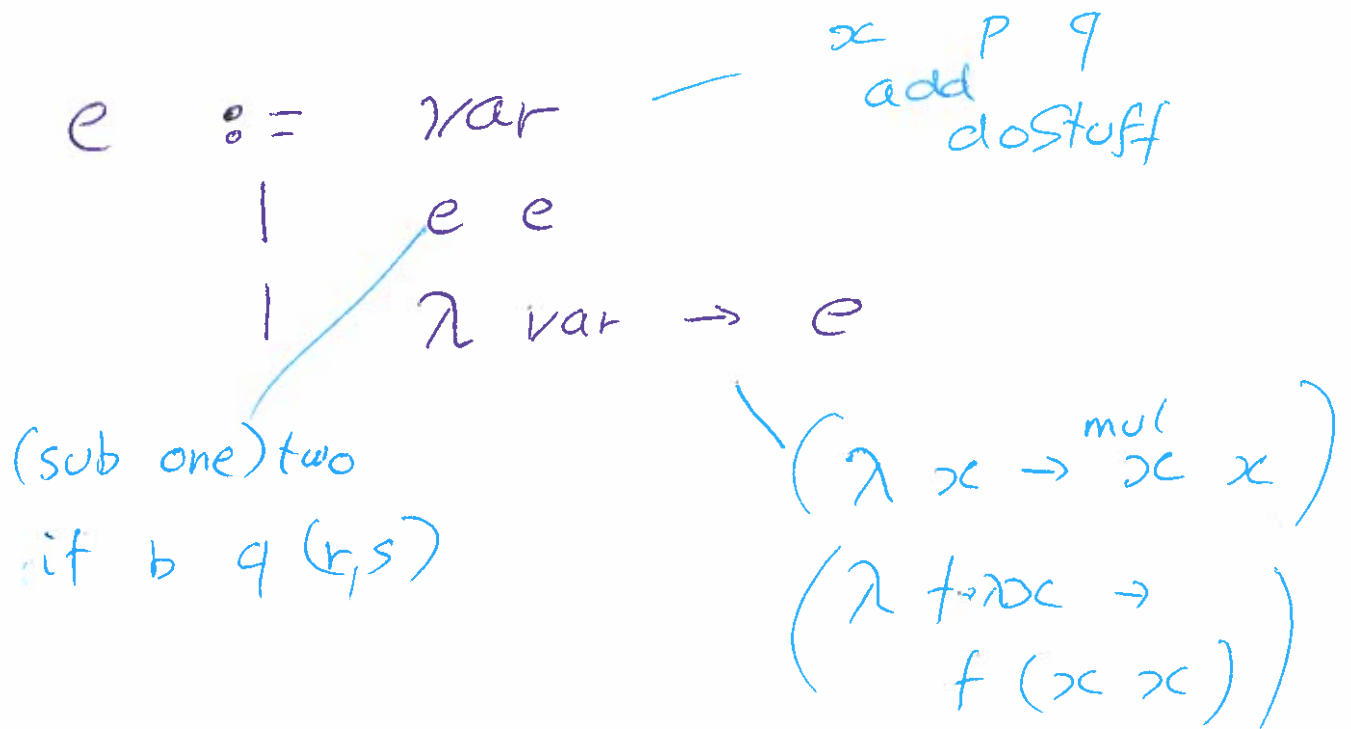 x p q
add
doStuff
e := var
| e e
| λ var → e
(sub one) two
if b q (r,s)
(λ x → mul x x)
(λ f→λx →
f (x x))